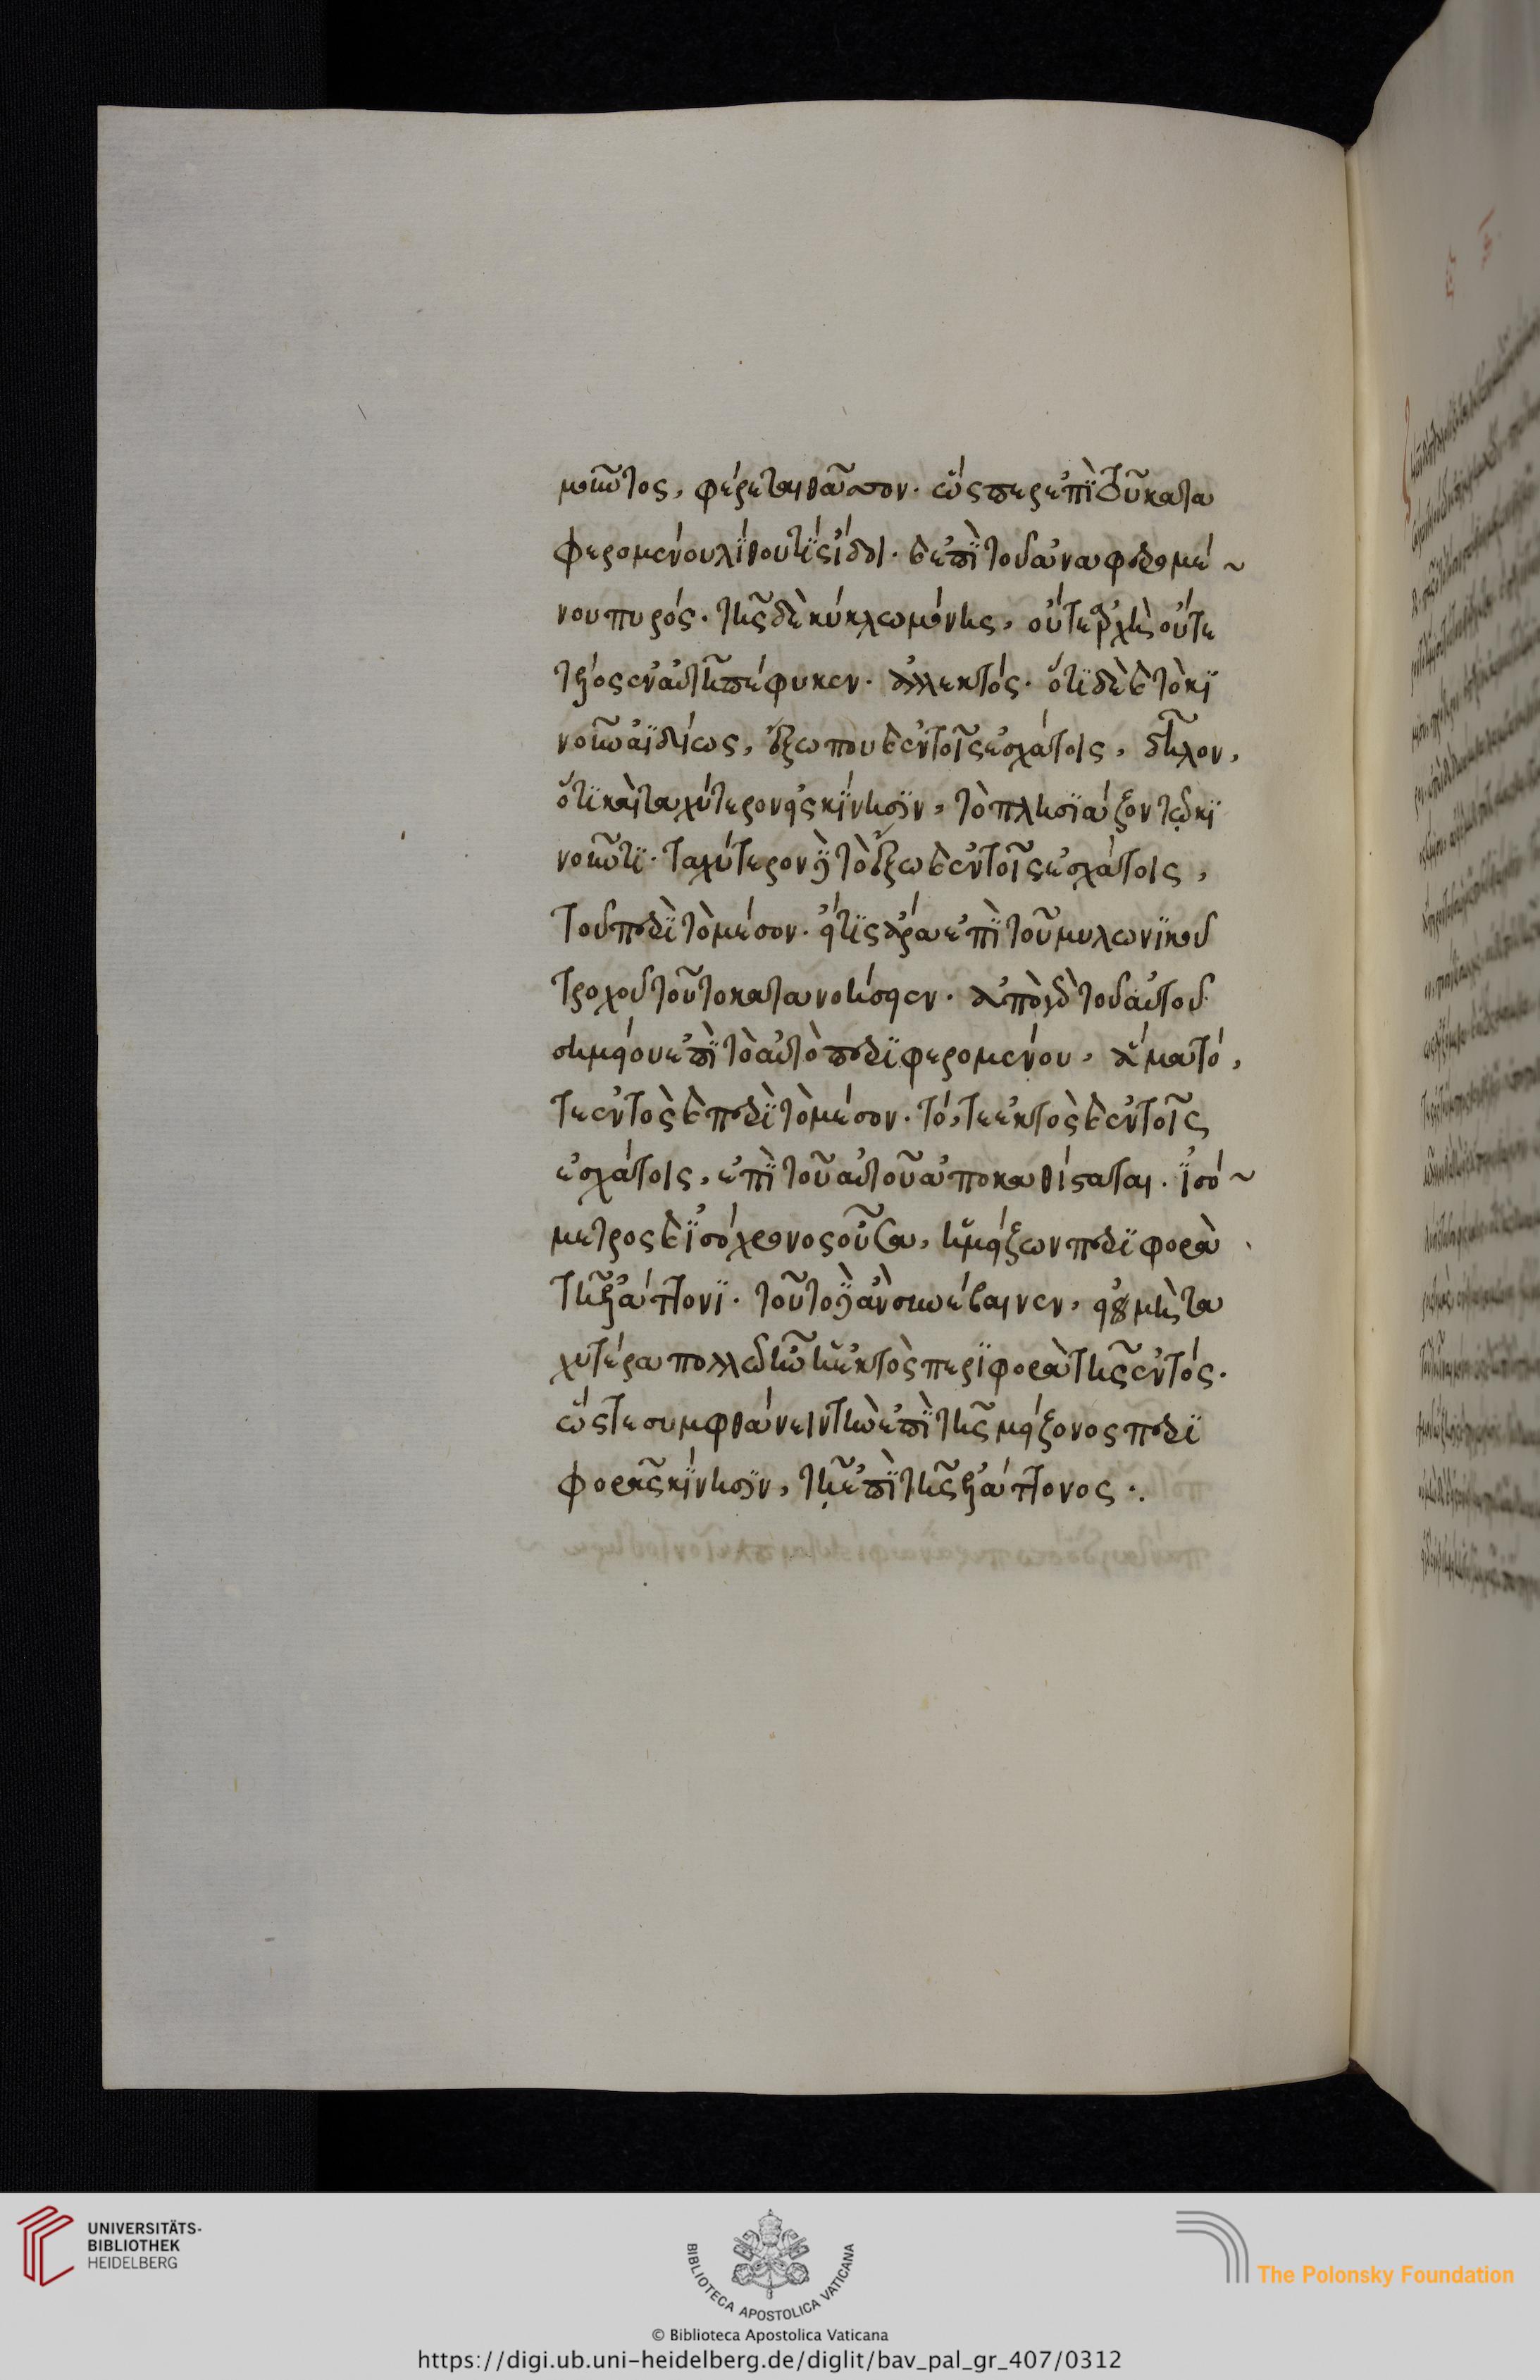 μακῶντος, φέρεται θᾶττον. ὥσπερ ἐπὶ τοῦ κατα
φερομένου λίθου τὶς ἴδοι. καὶ ἐπὶ τοῦ ἀναφερομέ~
νου πυρός. τῆς δὲ κύκλω μόνης, οὔτε ἀρχὴ οὔτε
τέλος ἐν αὐτῆ πέφυκεν. ἀλλ' ἐκτός. ὅτι δὲ καὶ τὸ κι
νοῦν ἀϊδίως, ἔξω που καὶ ἐν τοῖς ἐσχάτοις, δῆλον,
ὅτι καὶ ταχύτερον εἰς κίνησιν, τὸ πλησιάζον τῷ κι
νοῦντι. ταχύτερον γὰρ τὸ ἔξω καὶ ἐν τοῖς ἐσχάτοις,
τοῦ περὶ τὸ μέσον. εἴ τις ἄρα ἐπὶ τοῦ μυλωνικοῦ
τροχοῦ τοῦτο κατανοήσειεν. ἀπὸ γὰρ τοῦ αὐτοῦ
σημείου ἐπὶ τὸ αὐτὸ περιφερομένου, ἅμα τό,
τε ἐντὸς καὶ περὶ τὸ μέσον. τό, τε ἐκτὸς καὶ ἐν τοῖς
ἐσχάτοις, ἐπὶ τοῦ αὐτοῦ ἀποκαθίσταται. ἰσό~
μετρος καὶ ἰσόχρονος οὖσα, ἡ μείζων περιφορὰ
τῆ ἐλάττονι. τοῦτο γὰρ ἂν συνέβαινεν, εἰ οὐ μὴ τα
χυτέρα πολλῷ ἦν ἡ ἐκτὸς περιφορὰ τῆς ἐντός.
ὥστε συμφθάνειν τὴν ἐπὶ τῆς μείζονος περι
φορᾶς κίνησιν, τῇ ἐπὶ τῆς ἐλάττονος.
UNIVERSITÄTS-
BIBLIOTHEK
HEIDELBERG
BIBLIOTECA APOSTOLICA VATICANA
The Polonsky Foundation
© Biblioteca Apostolica Vaticana
https://digi.ub.uni-heidelberg.de/diglit/bav_pal_gr_407/0312